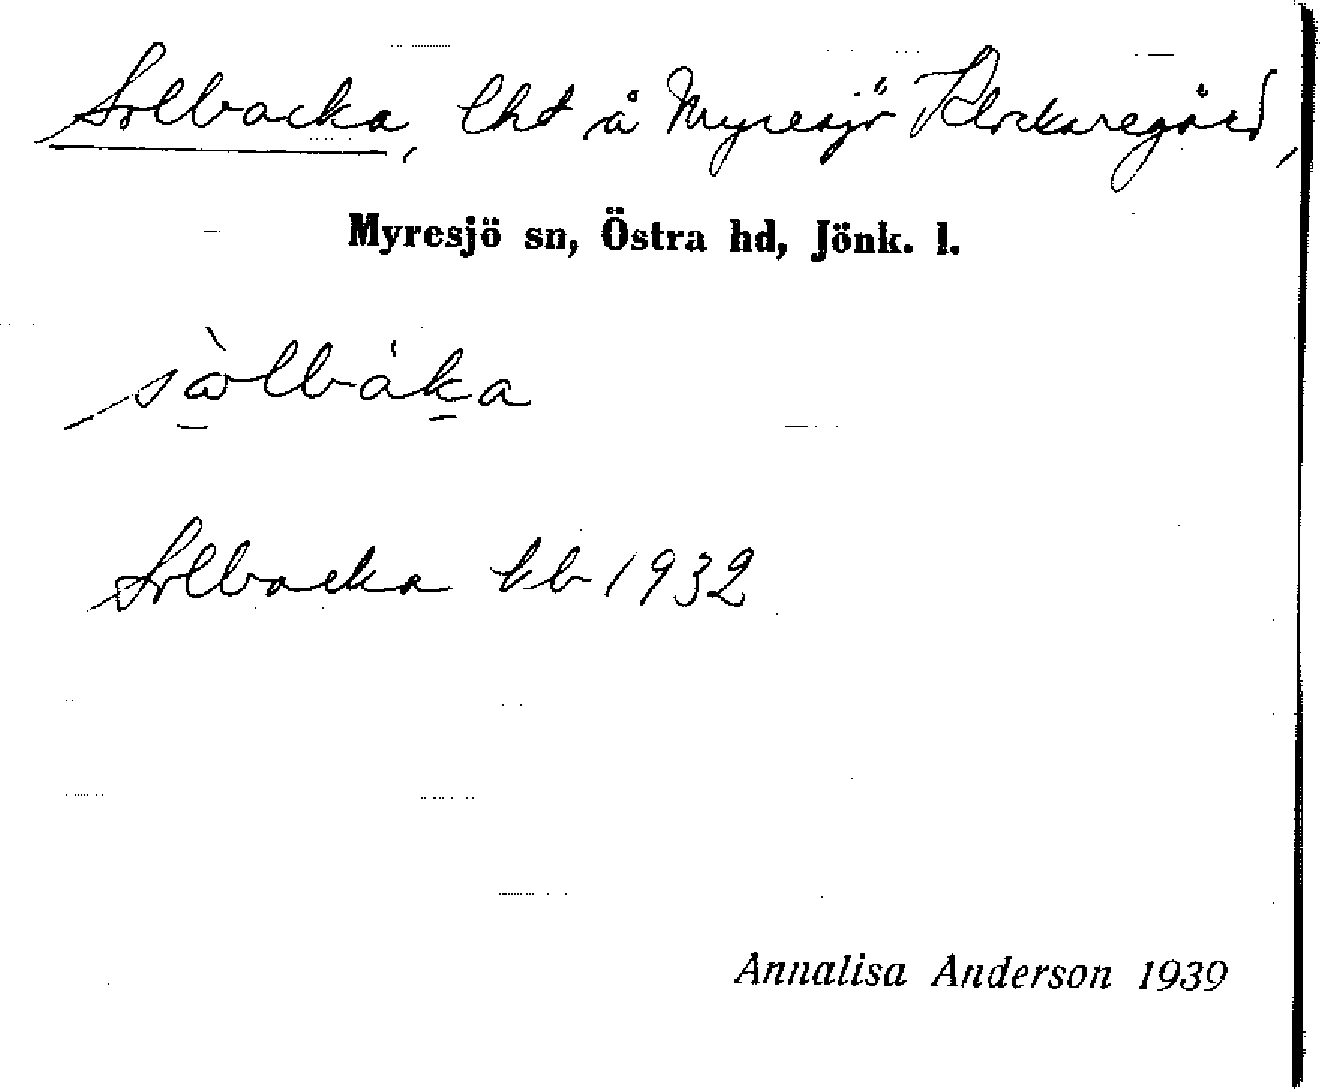 Solbacka, lht å Myresjö Klockaregård,
Myresjö sn, Östra hd, Jönk. l.
Solbacka kb 1932
Annalisa Anderson 1939